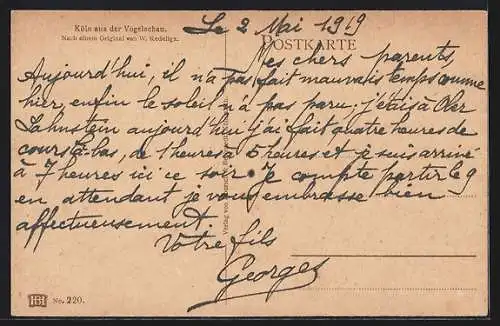 Köln aus der Vogelschau.
Nach einem Original von W. Redeligx.
POSTKARTE
Le 2 Mai 1919
Mes chers parents,
Aujourd'hui, il n'a pas fait mauvais temps comme
hier, enfin le soleil n'a pas paru; j'étais à Ober
Lahnstein aujourd'hui j'ai fait quatre heures de
cours là-bas, de 1 heures à 5 heures et je suis arrivé
à 7 heures ici ce soir. Je compte partir le 9
en attendant je vous embrasse bien
affectueusement.
Votre fils
Georges
Verlag von
No. 220.